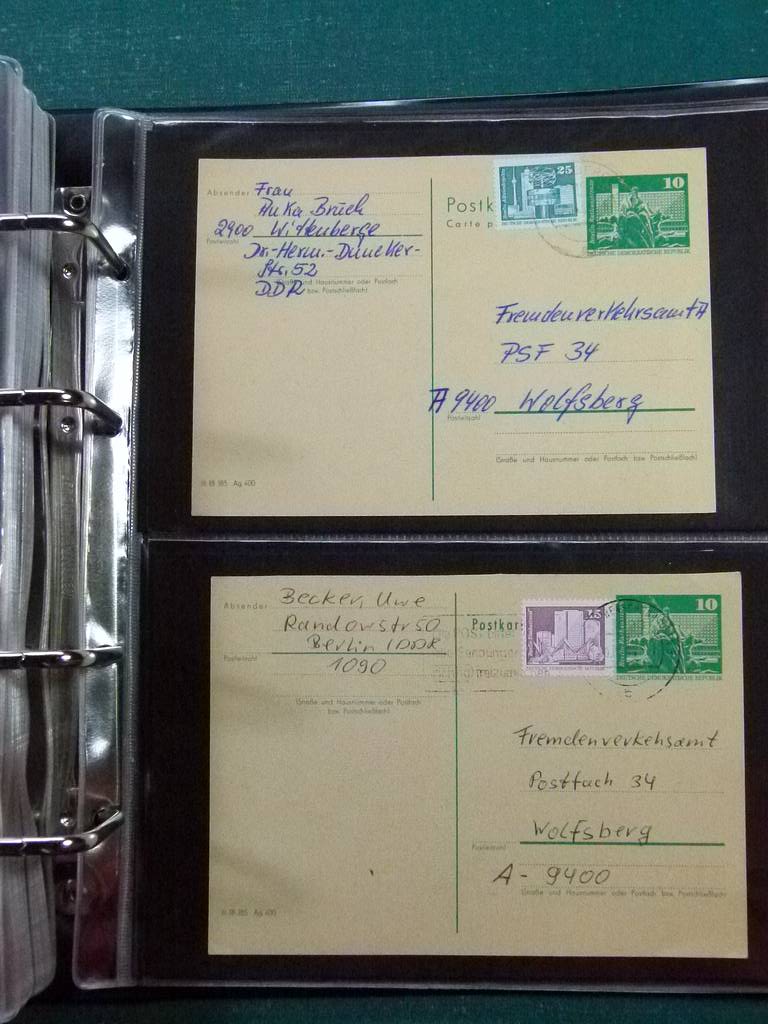 Absender Frau
Anka Brüch
2900 Wittenberge
Postleitzahl
Dr.-Herm.-Duncker-
Str. 52
(Straße und Hausnummer oder Postfach
DDR bzw. Postschließfach)
III 18 185 Ag 400
Postk
Carte p
25
DEUTSCHE DEMOKRATISCHE REPUBLIK
10
Berlin
DEUTSCHE DEMOKRATISCHE REPUBLIK
Fremdenverkehrsamt A
PSF 34
A 9400 Wolfsberg
Postleitzahl
(Straße und Hausnummer oder Postfach bzw. Postschließfach)
Absender Becker, Uwe
Randowstr 50
Berlin / DDR
Postleitzahl
1090
(Straße und Hausnummer oder Postfach
bzw. Postschließfach)
III 18 185 Ag 400
Postkar
10
Berlin
DEUTSCHE DEMOKRATISCHE REPUBLIK
Fremdenverkehsamt
Postfach 34
Wolfsberg
Postleitzahl
A - 9400
(Straße und Hausnummer oder Postfach bzw. Postschließfach)